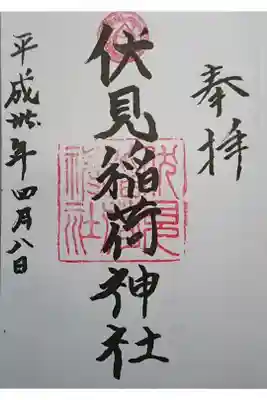 奉拝
伏見稲荷神社
平成 年四月八日